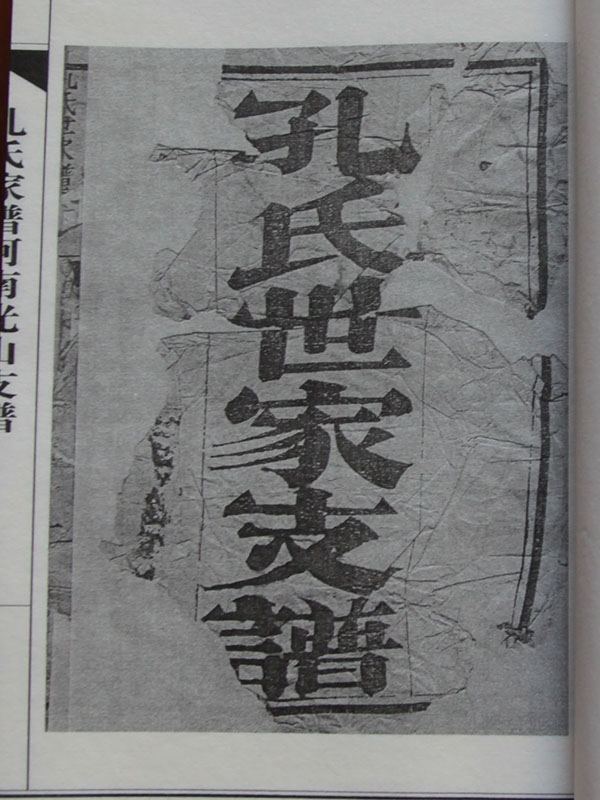 孔氏世家支譜
孔氏世家譜
孔氏家譜河南光山支譜